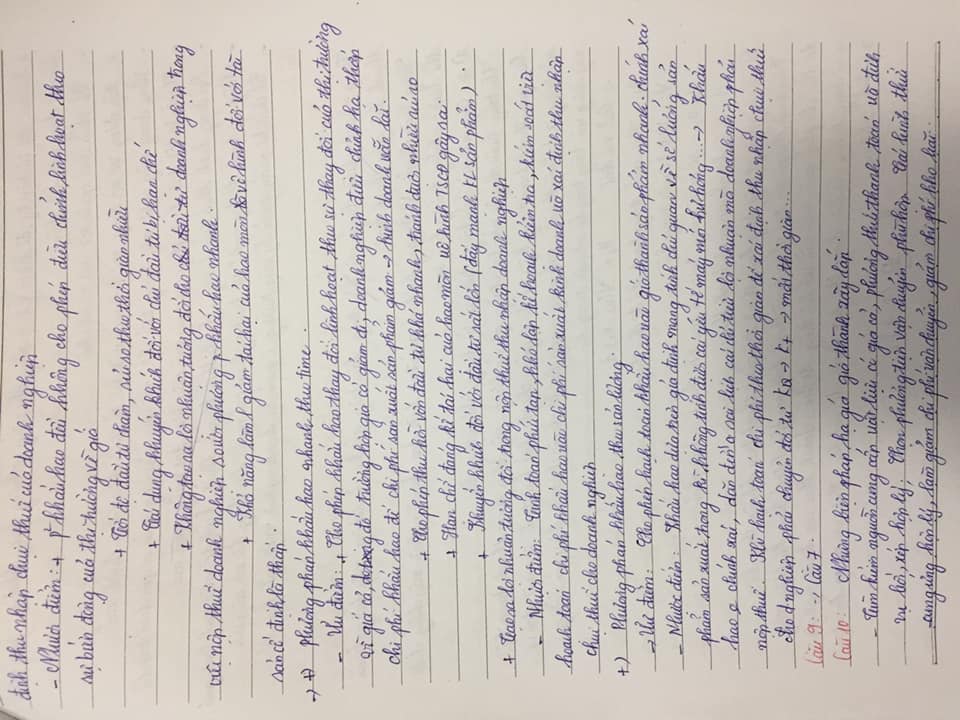 định thu nhập chịu thuế của doanh nghiệp
- Nhược điểm: + P² khấu hao đều không cho phép điều chỉnh, linh hoạt theo
sự biến động của thị trường về giá
+ Tốc độ đầu tư chậm, rủi ro theo thời gian nhiều
+ Tác dụng khuyến khích đổi với chủ đầu tư bị hạn chế
+ Không tạo ra lợi nhuận tương đối cho chủ đầu tư doanh nghiệp trong
việc nộp thuế doanh nghiệp so với phương p khấu hao nhanh.
+ Khả năng làm giảm tác hại của hao mòn vô hình đối với tài
sản cố định là thấp
→ +) Phương pháp khấu hao nhanh theo time
- Ưu điểm: + Cho phép khấu hao thay đổi linh hoạt theo sự thay đổi của thị trường
về giá cả, do đó trường hợp giá cả giảm đi, doanh nghiệp điều chỉnh hạ thấp
chi phí khấu hao để chi phí sản xuất sản phẩm giảm → kinh doanh vẫn lãi.
+ Cho phép thu hồi vốn đầu tư khá nhanh, tránh được nhiều rủi ro
+ Hạn chế đáng kể tác hại của hao mòn vô hình TSCĐ gây ra
+ Khuyến khích đối với đầu tư rất lớn (đẩy mạnh KL sản phẩm)
+ Tạo ra lợi nhuận tương đối trong nộp thuế thu nhập doanh nghiệp
- Nhược điểm: Tính toán phức tạp, khó lập kế hoạch kiểm tra, kiểm soát việc
hoạch toán chi phí khấu hao vào chi phí sản xuất kinh doanh và xác định thu nhập
chịu thuế cho doanh nghiệp
+) Phương pháp khấu hao theo sản lượng
→ Ưu điểm: Cho phép hạch toán khấu hao vào giá thành sản phẩm nhanh, chính xác
- Nhược điểm: Khấu hao dựa trên giả định mang tính chủ quan về số lượng sản
phẩm sản xuất trong kì không tính được các yếu tố máy móc hư hỏng... → Khấu
hao ko chính xác, dẫn đến sai lệch các chỉ tiêu lợi nhuận mà doanh nghiệp phải
nộp thuế. Khi hạch toán chi phí theo thời gian để xác định thu nhập chịu thuế
cho d.nghiệp phải chuyển đổi từ KQ → Kt → mất thời gian...
Câu 9: → Câu 7.
Câu 10: Những biện pháp hạ giá thành xây lắp
- Tìm kiếm nguồn cung cấp vật liệu có giá cả, phương thức thanh toán và dịch
vụ bốc, xếp hợp lý. Chọn phương tiện vận chuyển phù hợp. Các hình thức
cung ứng hợp lý làm giảm chi phí vận chuyển, giảm chi phí kho bãi.